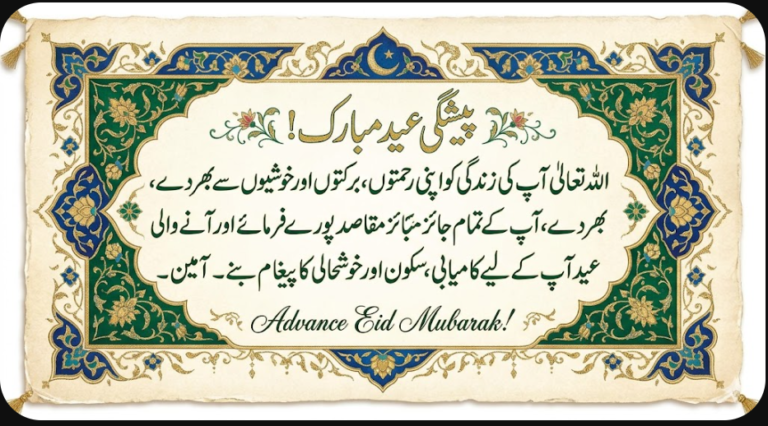 پیشگی عید مبارک!
اللہ تعالیٰ آپ کی زندگی کو اپنی رحمتوں، برکتوں اور خوشیوں سے بھر دے،
بھر دے، آپ کے تمام جائز مبّائز مقاصد پورے فرمائے اور آنے والی
عید آپ کے لیے کامیابی، سکون اور خوشحالی کا پیغام بنے۔ آمین۔
Advance Eid Mubarak!